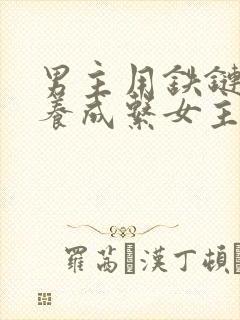 男主用鉄鏈
養成繫女主
羅茜·漢丁頓·